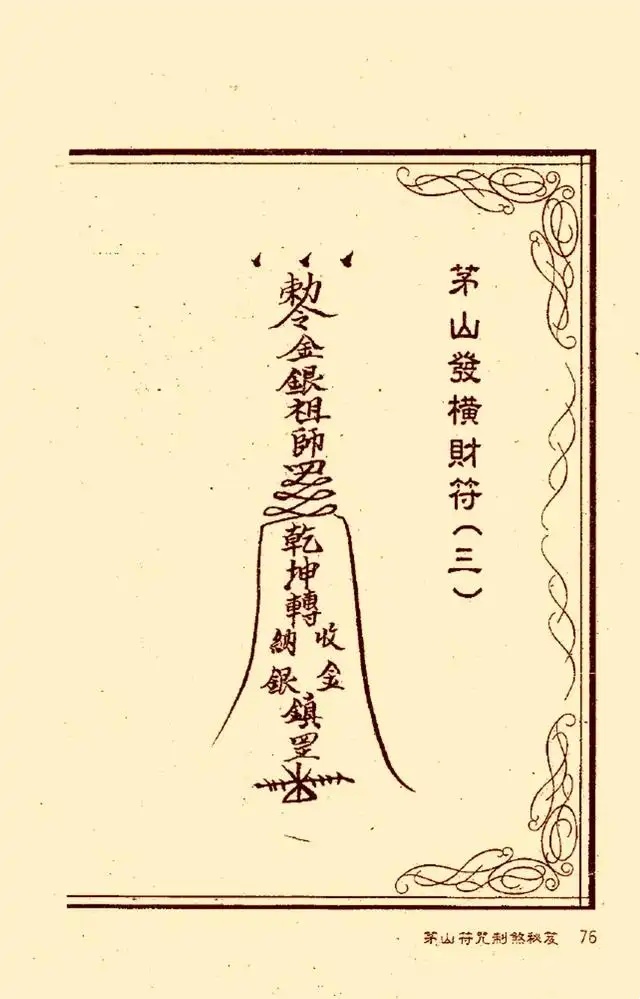 茅山發橫財符(三)
勅令金銀祖師
乾坤轉
收金
納銀
鎮罡
茅山符咒制煞秘笈 76